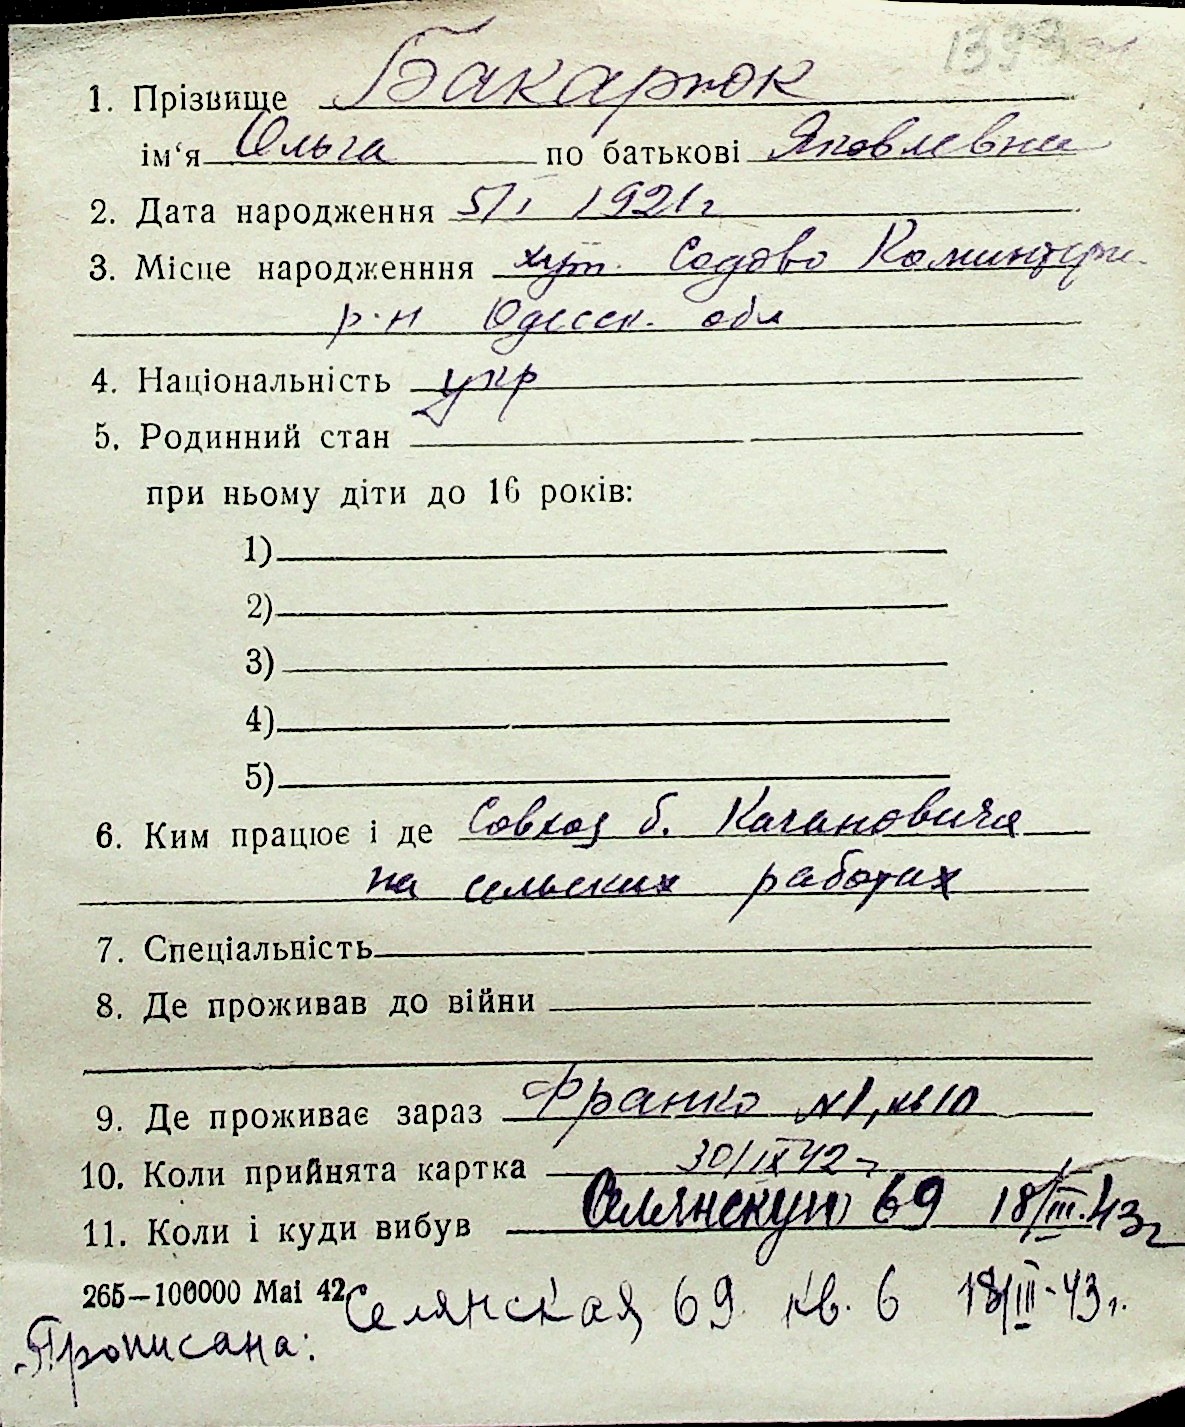 1. Прізвище Бакарюк
ім‘я Ольга по батькові Яковлевна
2. Дата народження 5/I 1921 г
3. Місце народженння хут. Садово Коминтерн.
р-н Одесск. обл
4. Національність укр
5. Родинний стан
при ньому діти до 16 років:
1)
2)
3)
4)
5)
6. Ким працює і де Совхоз б. Кагановича
на сельских работах
7. Спеціальність
8. Де проживав до війни
9. Де проживає зараз Франко №1, кв 10
10. Коли прийнята картка 30/IX 42 г
11. Коли і куди вибув Селянскую 69 18/III.43г
265—100000 Mai 42
Селянская 69 кв. 6 18/III-43г.
Прописана: